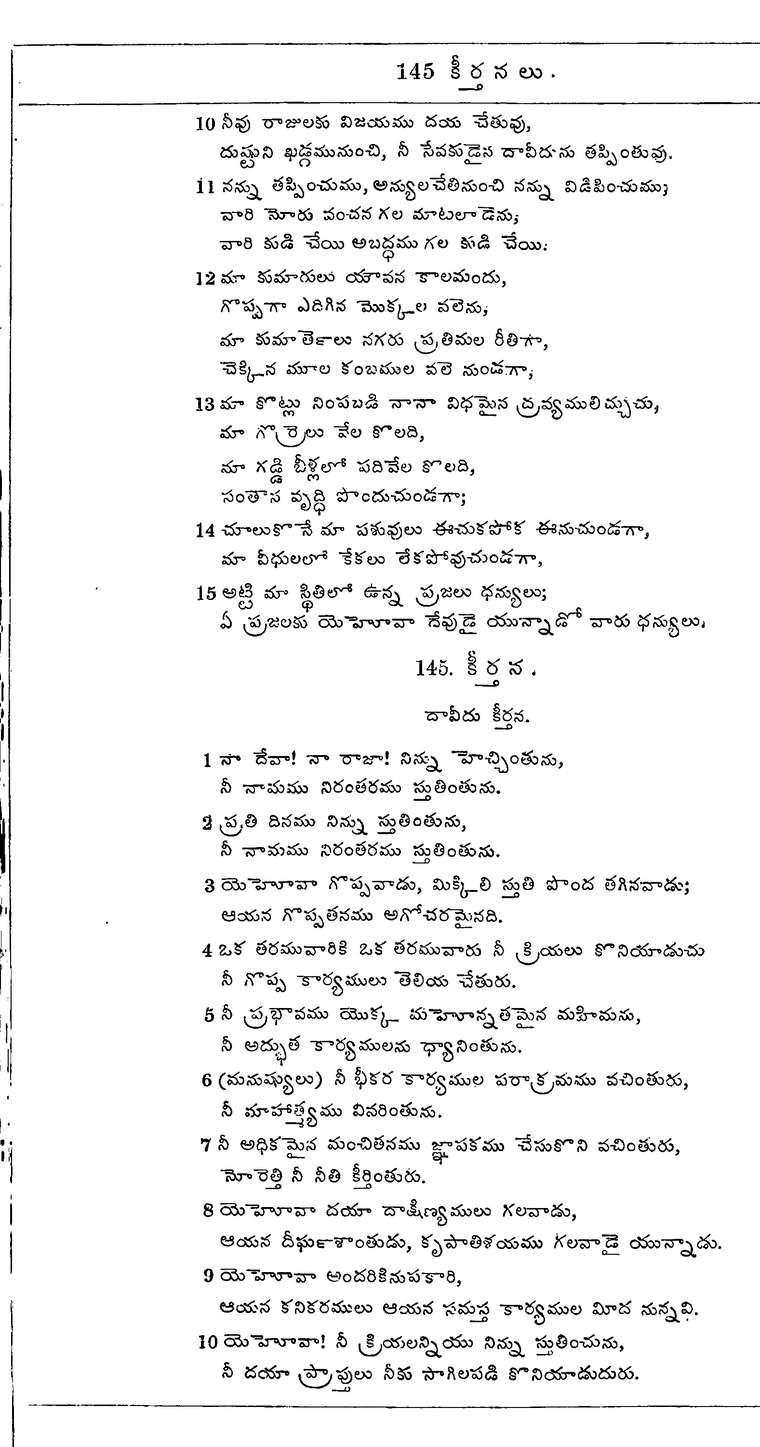 145 కీర్తనలు.
10 నీవు రాజులకు విజయము దయ చేతువు,
దుష్టుని ఖడ్గమునుంచి, నీ సేవకుడైన దావీదును తప్పింతువు.
11 నన్ను తప్పించుము, అన్యులచేతినుంచి నన్ను విడిపించుము;
వారి నోరు వంచన గల మాటలాడెను;
వారి కుడి చేయి అబద్ధము గల కుడి చేయి.
12 మా కుమారులు యౌవన కాలమందు,
గొప్పగా ఎదిగిన మొక్కల వలెను;
మా కుమార్తెలు నగరు ప్రతిమల రీతిగా,
చెక్కిన మూల కంబముల వలె నుండగా;
13 మా కొట్లు నింపబడి నానా విధమైన ద్రవ్యములిచ్చుచు,
మా గొర్రెలు వేల కొలది,
మా గడ్డి బీళ్లలో పదివేల కొలది,
సంతాన వృద్ధి పొందుచుండగా;
14 చూలుకొనే మా పశువులు ఈచుకపోక ఈనుచుండగా,
మా వీధులలో కేకలు లేకపోవుచుండగా,
15 అట్టి మా స్థితిలో ఉన్న ప్రజలు ధన్యులు;
ఏ ప్రజలకు యెహోవా దేవుడై యున్నాడో వారు ధన్యులు.
145. కీర్తన.
దావీదు కీర్తన.
1 నా దేవా! నా రాజా! నిన్ను హెచ్చింతును,
నీ నామము నిరంతరము స్తుతింతును.
2 ప్రతి దినము నిన్ను స్తుతింతును,
నీ నామము నిరంతరము స్తుతింతును.
3 యెహోవా గొప్పవాడు, మిక్కిలి స్తుతి పొంద తగినవాడు;
ఆయన గొప్పతనము అగోచరమైనది.
4 ఒక తరమువారికి ఒక తరమువారు నీ క్రియలు కొనియాడుచు
నీ గొప్ప కార్యములు తెలియ చేతురు.
5 నీ ప్రభావము యొక్క మహోన్నతమైన మహిమను,
నీ అద్భుత కార్యములను ధ్యానింతును.
6 (మనుష్యులు) నీ భీకర కార్యముల పరాక్రమము వచింతురు,
నీ మాహాత్మ్యము వివరింతును.
7 నీ అధికమైన మంచితనము జ్ఞాపకము చేసుకొని వచింతురు,
నోరెత్తి నీ నీతి కీర్తింతురు.
8 యెహోవా దయా దాక్షిణ్యములు గలవాడు,
ఆయన దీర్ఘశాంతుడు, కృపాతిశయము గలవాడై యున్నాడు.
9 యెహోవా అందరికినుపకారి,
ఆయన కనికరములు ఆయన సమస్త కార్యముల మీద నున్నవి.
10 యెహోవా! నీ క్రియలన్నియు నిన్ను స్తుతించును,
నీ దయా ప్రాప్తులు నీకు సాగిలపడి కొనియాడుదురు.